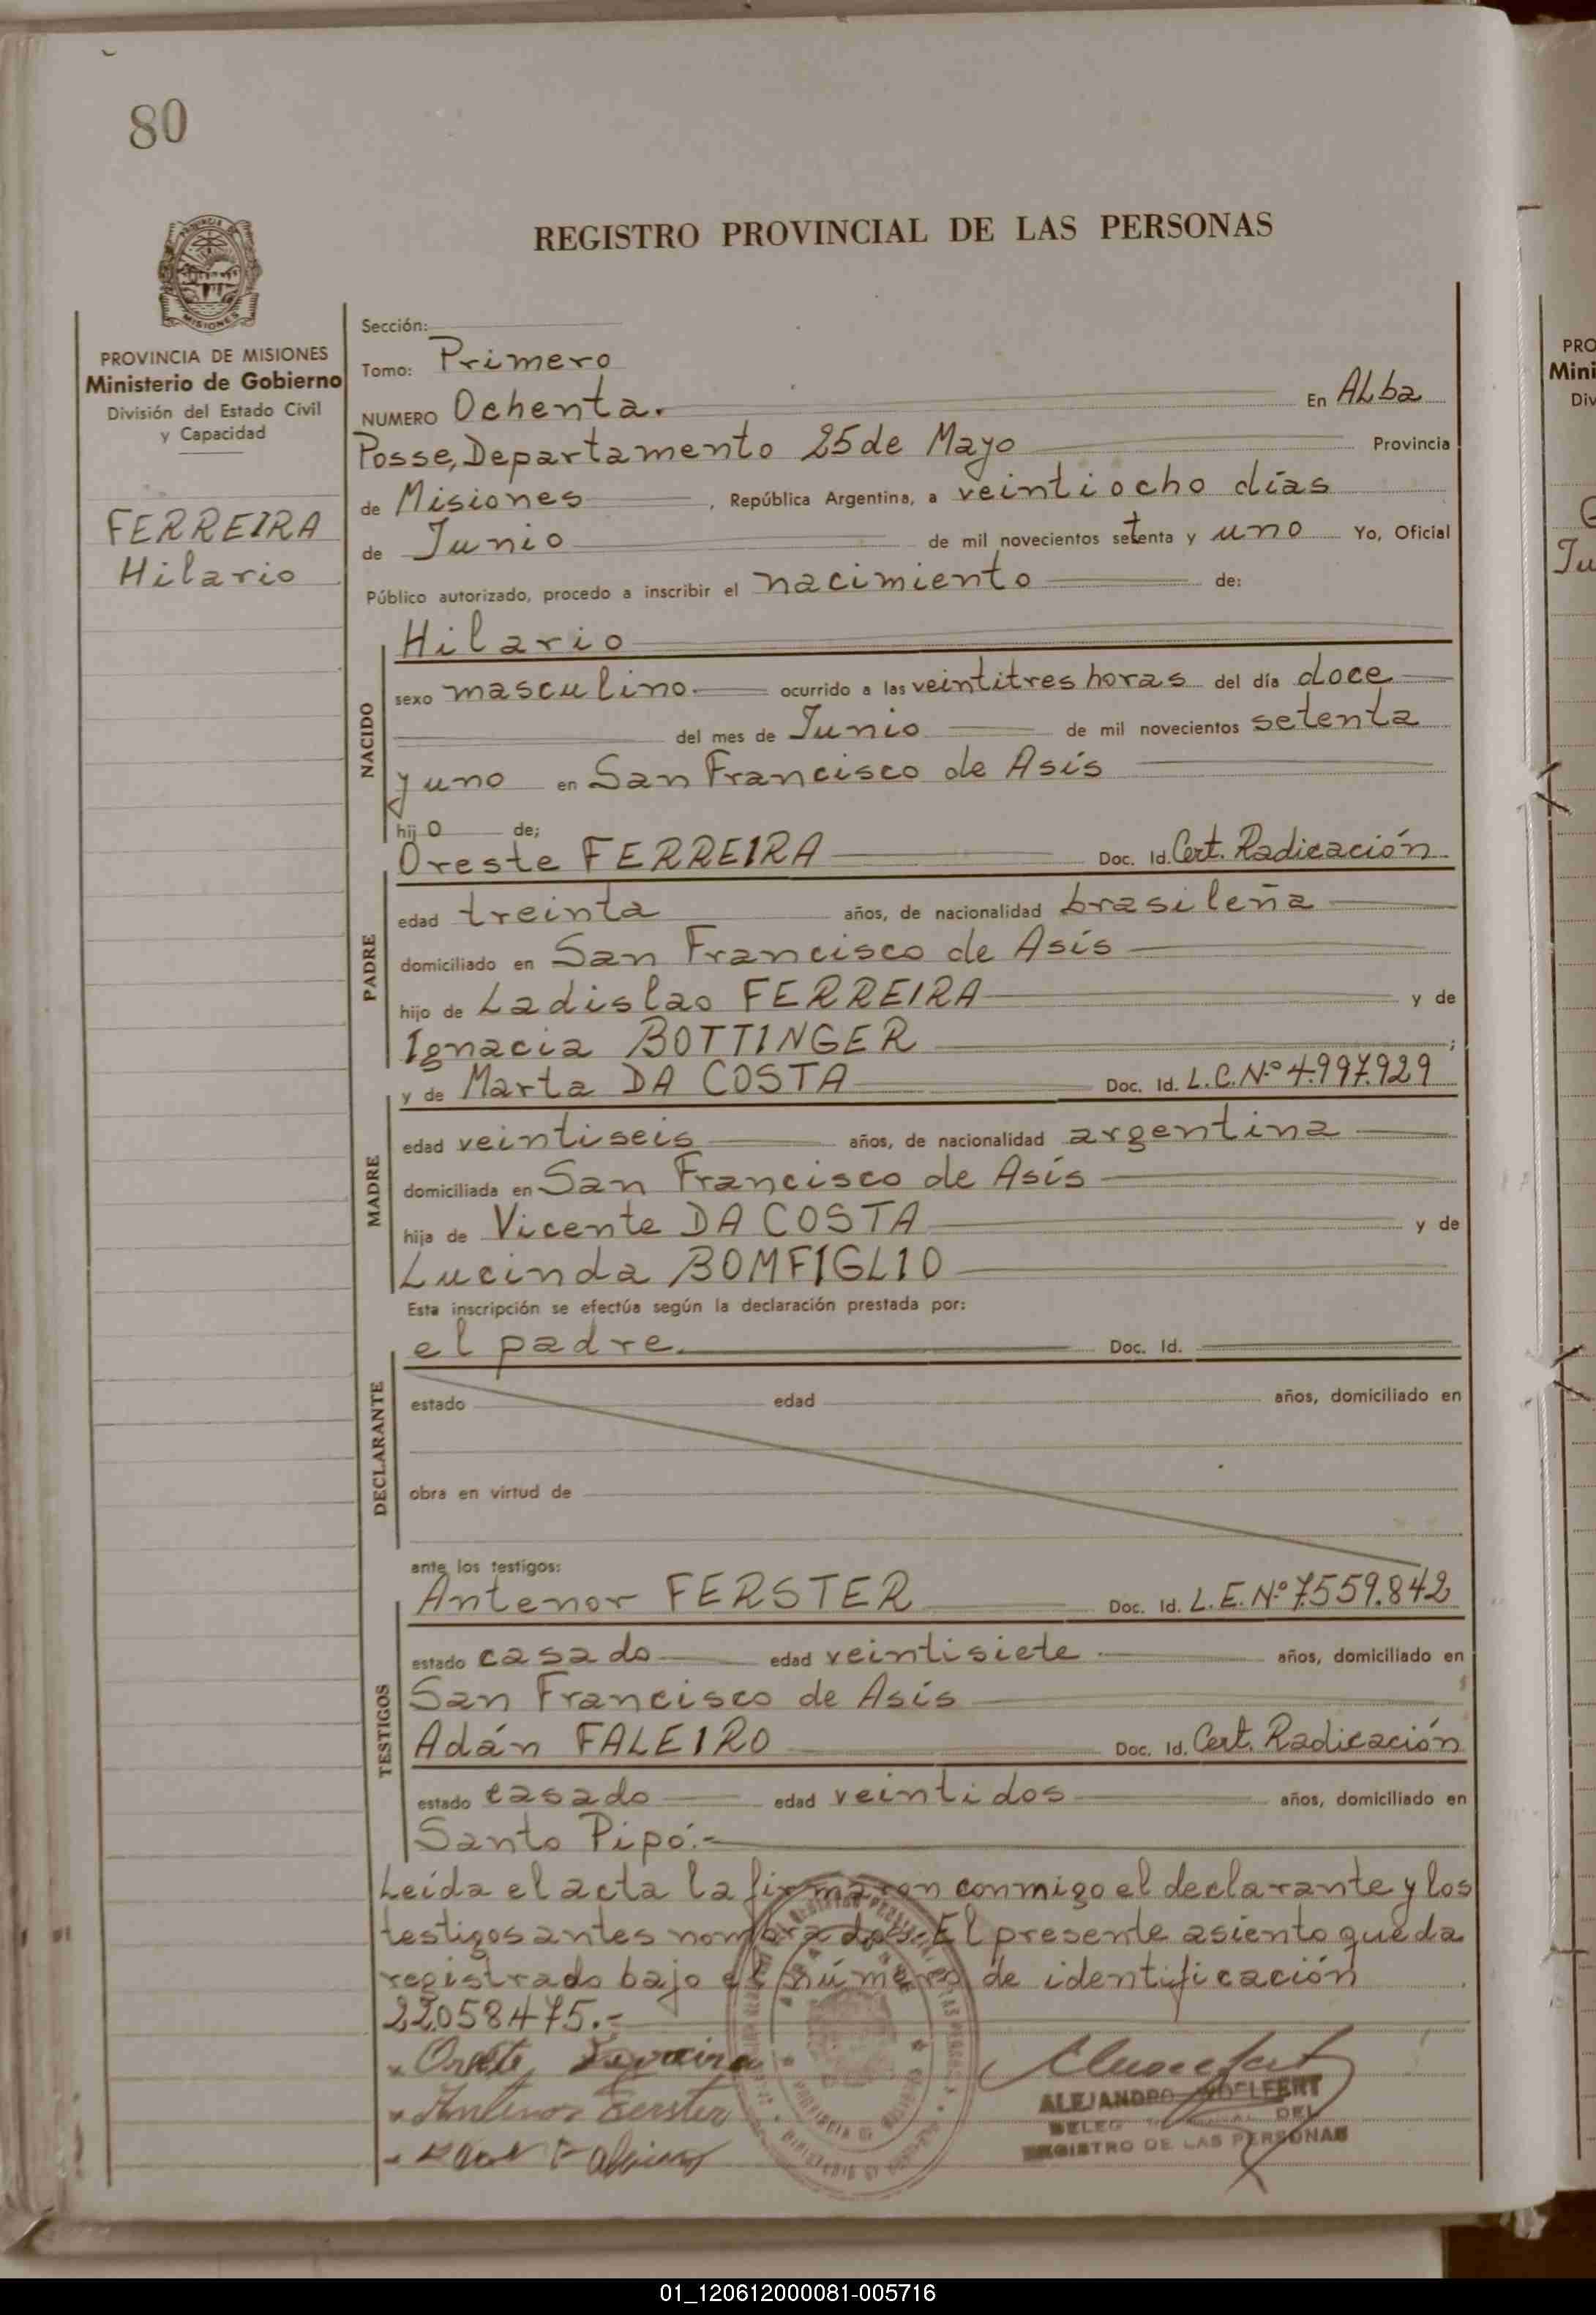 80
REGISTRO PROVINCIAL DE LAS PERSONAS
PROVINCIA DE MISIONES
Ministerio de Gobierno
División del Estado Civil
y Capacidad
FERREIRA
Hilario
Sección:
Tomo: Primero
NUMERO Ochenta. En ALba
Posse, Departamento 25 de Mayo Provincia
de Misiones, República Argentina, a veintiocho días
de Junio de mil novecientos setenta y uno Yo, Oficial
Público autorizado, procedo a inscribir el nacimiento de:
Hilario
NACIDO
sexo masculino ocurrido a las veintitres horas del día doce
del mes de Junio de mil novecientos setenta
y uno en San Francisco de Asís
hijo de;
Oreste FERREIRA Doc. Id. Cert. Radicación
PADRE
edad treinta años, de nacionalidad brasileña
domiciliado en San Francisco de Asís
hijo de Ladislao FERREIRA y de
Ignacia BOTTINGER ;
y de Marta DA COSTA Doc. Id. L.C.Nº 4.997.929
MADRE
edad veintiseis años, de nacionalidad argentina
domiciliada en San Francisco de Asís
hija de Vicente DA COSTA y de
Lucinda BOMFIGLIO
Esta inscripción se efectúa según la declaración prestada por:
el padre. Doc. Id.
DECLARANTE
estado edad años, domiciliado en
obra en virtud de
ante los testigos:
Antenor FERSTER Doc. Id. L.E.Nº 7.559.842
TESTIGOS
estado casado edad veintisiete años, domiciliado en
San Francisco de Asís
Adán FALEIRO Doc. Id. Cert. Radicación
estado casado edad veintidos años, domiciliado en
Santo Pipó.-
Leída el acta la firmaron conmigo el declarante y los
testigos antes nombrados. El presente asiento queda
registrado bajo el número de identificación
22058475.-
Antenor Ferster
ALEJANDRO
DEL
REGISTRO DE LAS PERSONAS
PRO
Mini
Div
01_120612000081-005716